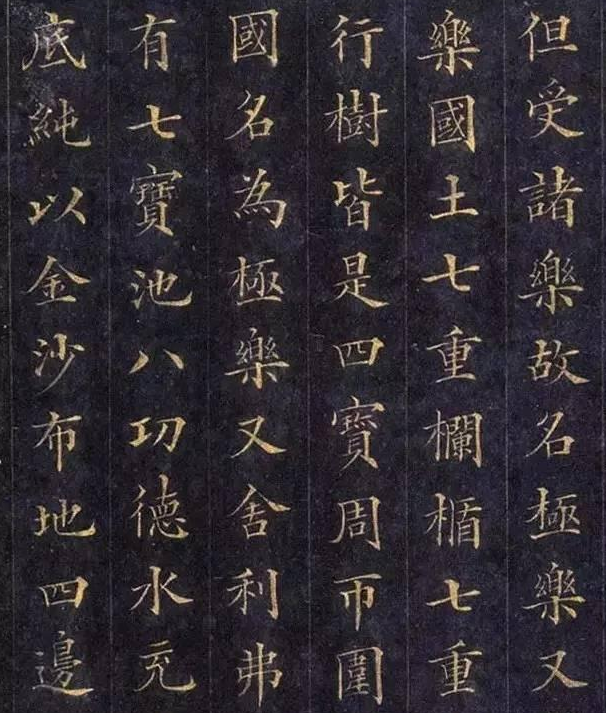 但受諸樂故名極樂又
樂國土七重欄楯七重
行樹皆是四寶周帀圍
國名為極樂又舍利弗
有七寶池八功德水充
底純以金沙布地四邊